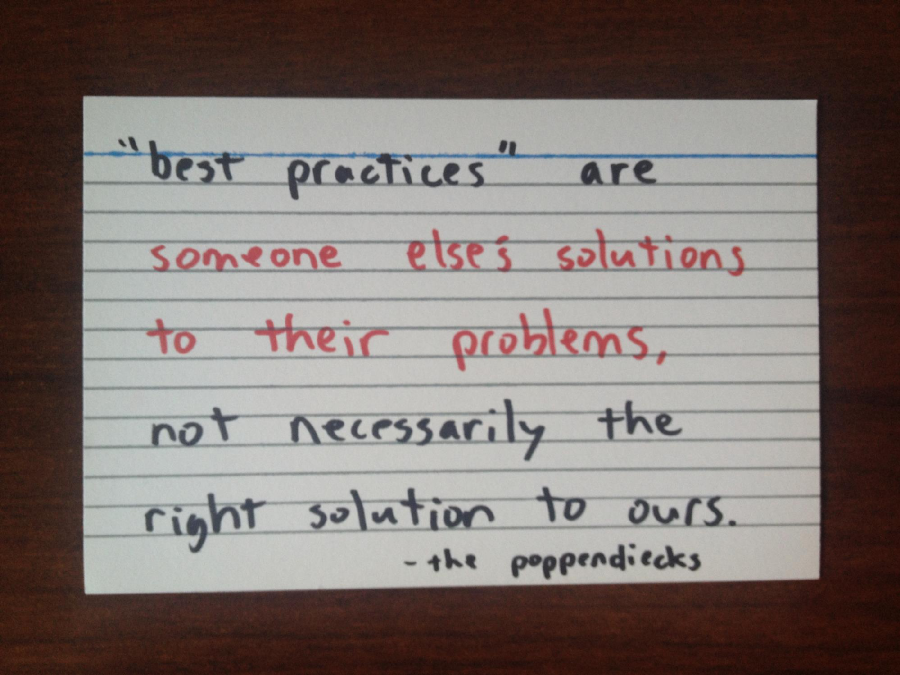 "best practices" are
someone else's solutions
to their problems,
not necessarily the
right solution to ours.
- the poppendiecks